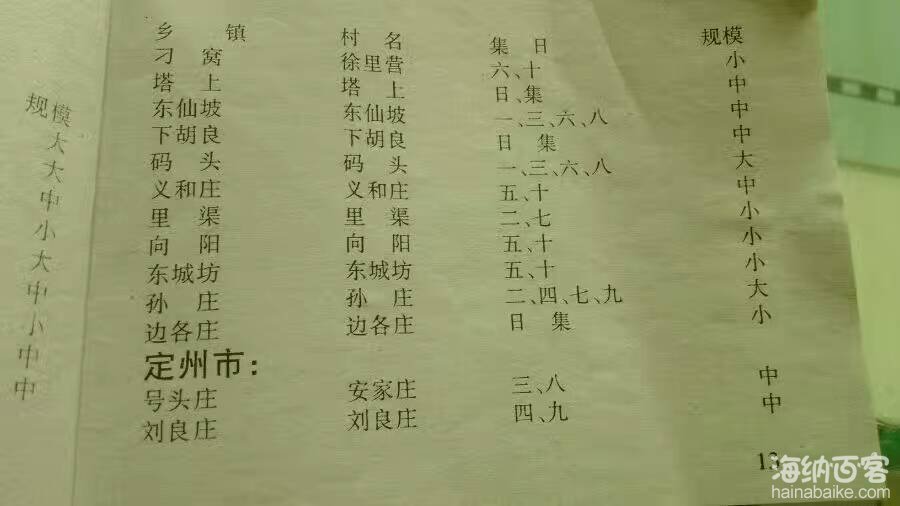 规模
大
大
中
小
大
中
小
中
中
乡镇 村名 集日 规模
刁窝 徐里营 六、十 小
塔上 塔上 日、集 中
东仙坡 东仙坡 一、三、六、八 中
下胡良 下胡良 日集 中
码头 码头 一、三、六、八 大
义和庄 义和庄 五、十 中
里渠 里渠 二、七 小
向阳 向阳 五、十 小
东城坊 东城坊 五、十 小
孙庄 孙庄 二、四、七、九 大
边各庄 边各庄 日集 小
定州市：
号头庄 安家庄 三、八 中
刘良庄 刘良庄 四、九 中
13
海纳百客
hainabaike.com